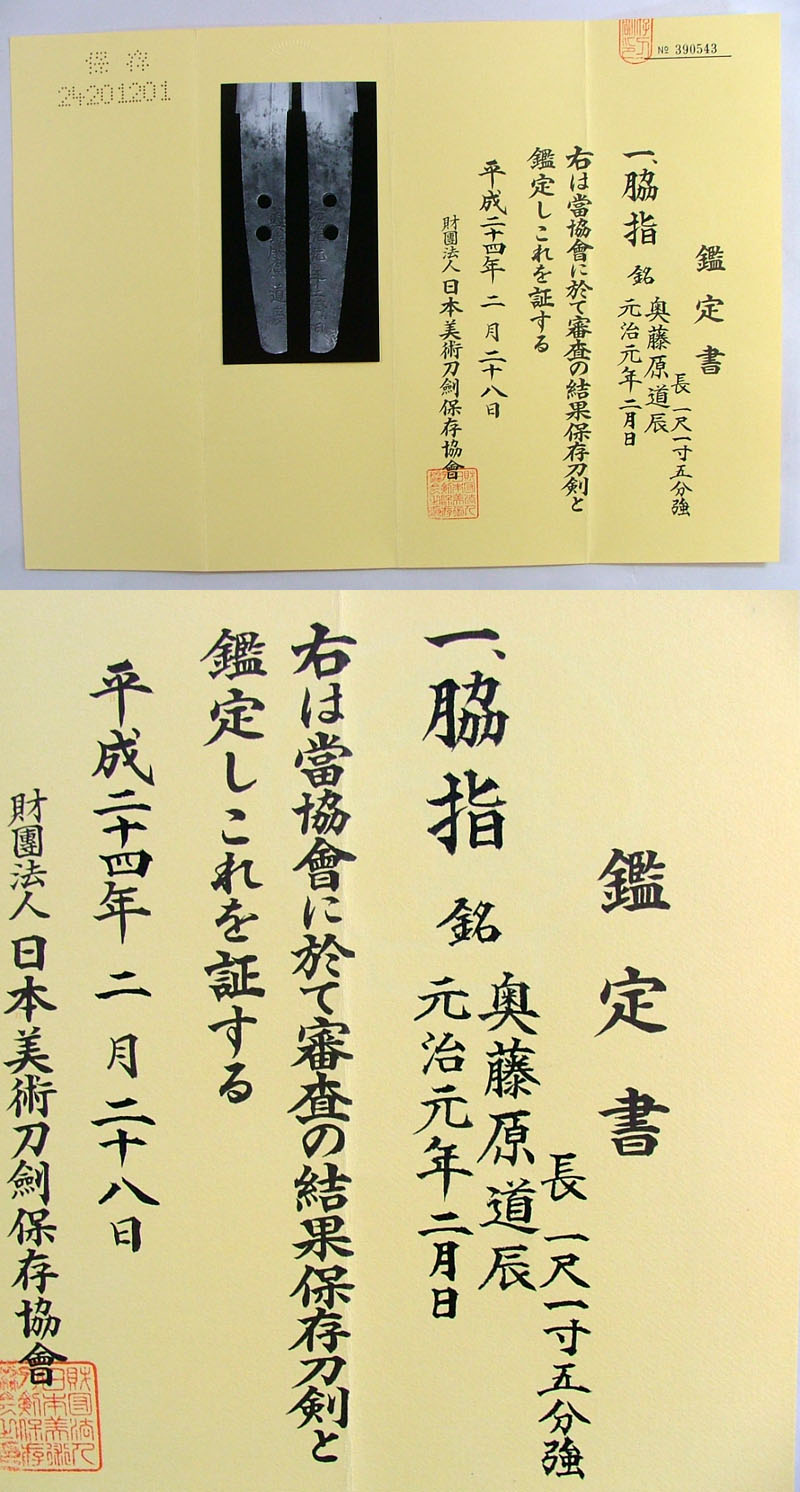 № 390543
鑑定書
長 一尺一寸五分強
一、脇指 銘 奥藤原道辰
元治元年二月日
右は當協會に於て審査の結果保存刀剣と
鑑定しこれを証する
平成二十四年 二月二十八日
財團法人日本美術刀劍保存協會
保存
24201201
鑑定書
長 一尺一寸五分強
一、脇指 銘 奥藤原道辰
元治元年二月日
右は當協會に於て審査の結果保存刀剣と
鑑定しこれを証する
平成二十四年 二月二十八日
財團法人日本美術刀劍保存協會